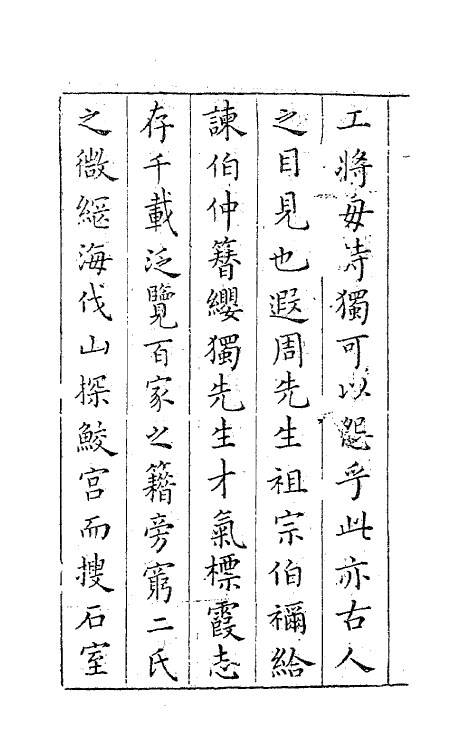 工將毋詩獨可以怨乎此亦古人
之目見也遐周先生祖宗伯禰給
諫伯仲簪纓獨先生才氣標霞志
存千載泛覽百家之籍旁窮二氏
之微縆海伐山探鮫宮而搜石室